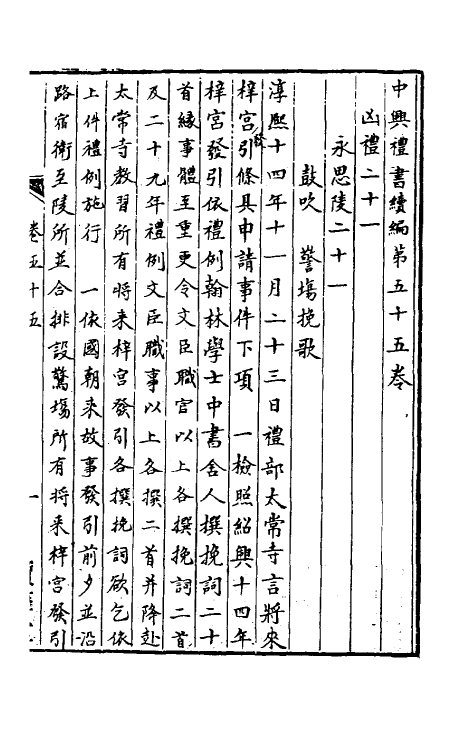 中興禮書續編第五十五卷
凶禮二十一
永思陵二十一
鼓吹　警場挽歌
淳熙十四年十一月二十三日禮部太常寺言將來
梓宮發引條具申請事件下項　一檢照紹興十四年
梓宮發引依禮例翰林學士中書舍人撰挽詞二十
首緣事體至重更令文臣職官以上各撰挽詞二首
及二十九年禮例文臣職事以上各撰二首并降赴
太常寺教習所有將来梓宮發引各撰挽詞欲乞依
上件禮例施行　一依國朝来故事發引前夕並沿
路宿衛至陵所並合排設驚場所有将来梓宮發引
卷五十五
一